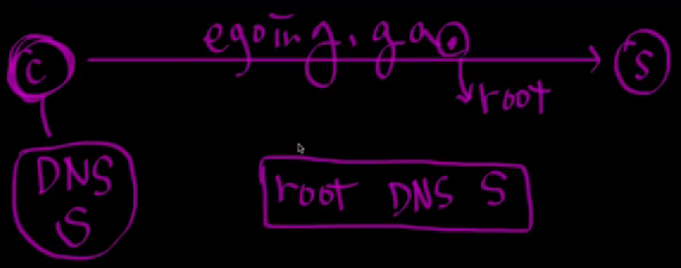 egoing.ga.
C
S
root
DNS
S
root DNS S